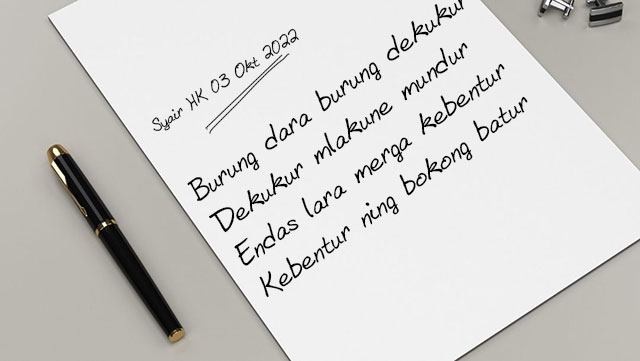 Syair HK 03 Okt 2022
Burung dara burung dekukur
Dekukur mlakune mundur
Endas lara merga kebentur
Kebentur ning bokong batur